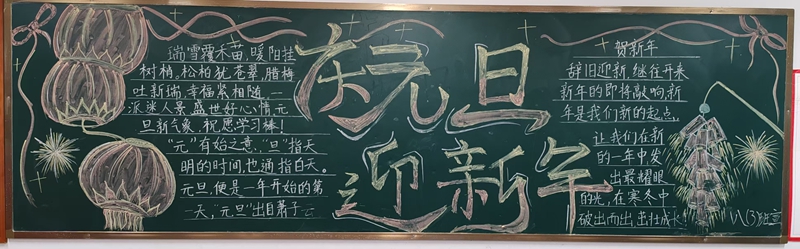 瑞雪覆禾苗，暖阳挂
树梢。松柏犹苍翠，腊梅
吐新瑞，幸福紧相随，一
派迷人景，盛世好心情，元
旦新气象，祝愿学习棒！
“元”有始之意，“旦”指天
明的时间，也通指白天。
元旦，便是一年开始的第
一天，“元旦”出自萧子云
庆元旦
迎新年
贺新年
辞旧迎新，继往开来
新年的即将敲响，新
年是我们新的起点，
让我们在新
的一年中发
出最耀眼
的光，在寒冬中
破出而出，茁壮成长
八(3)班宣